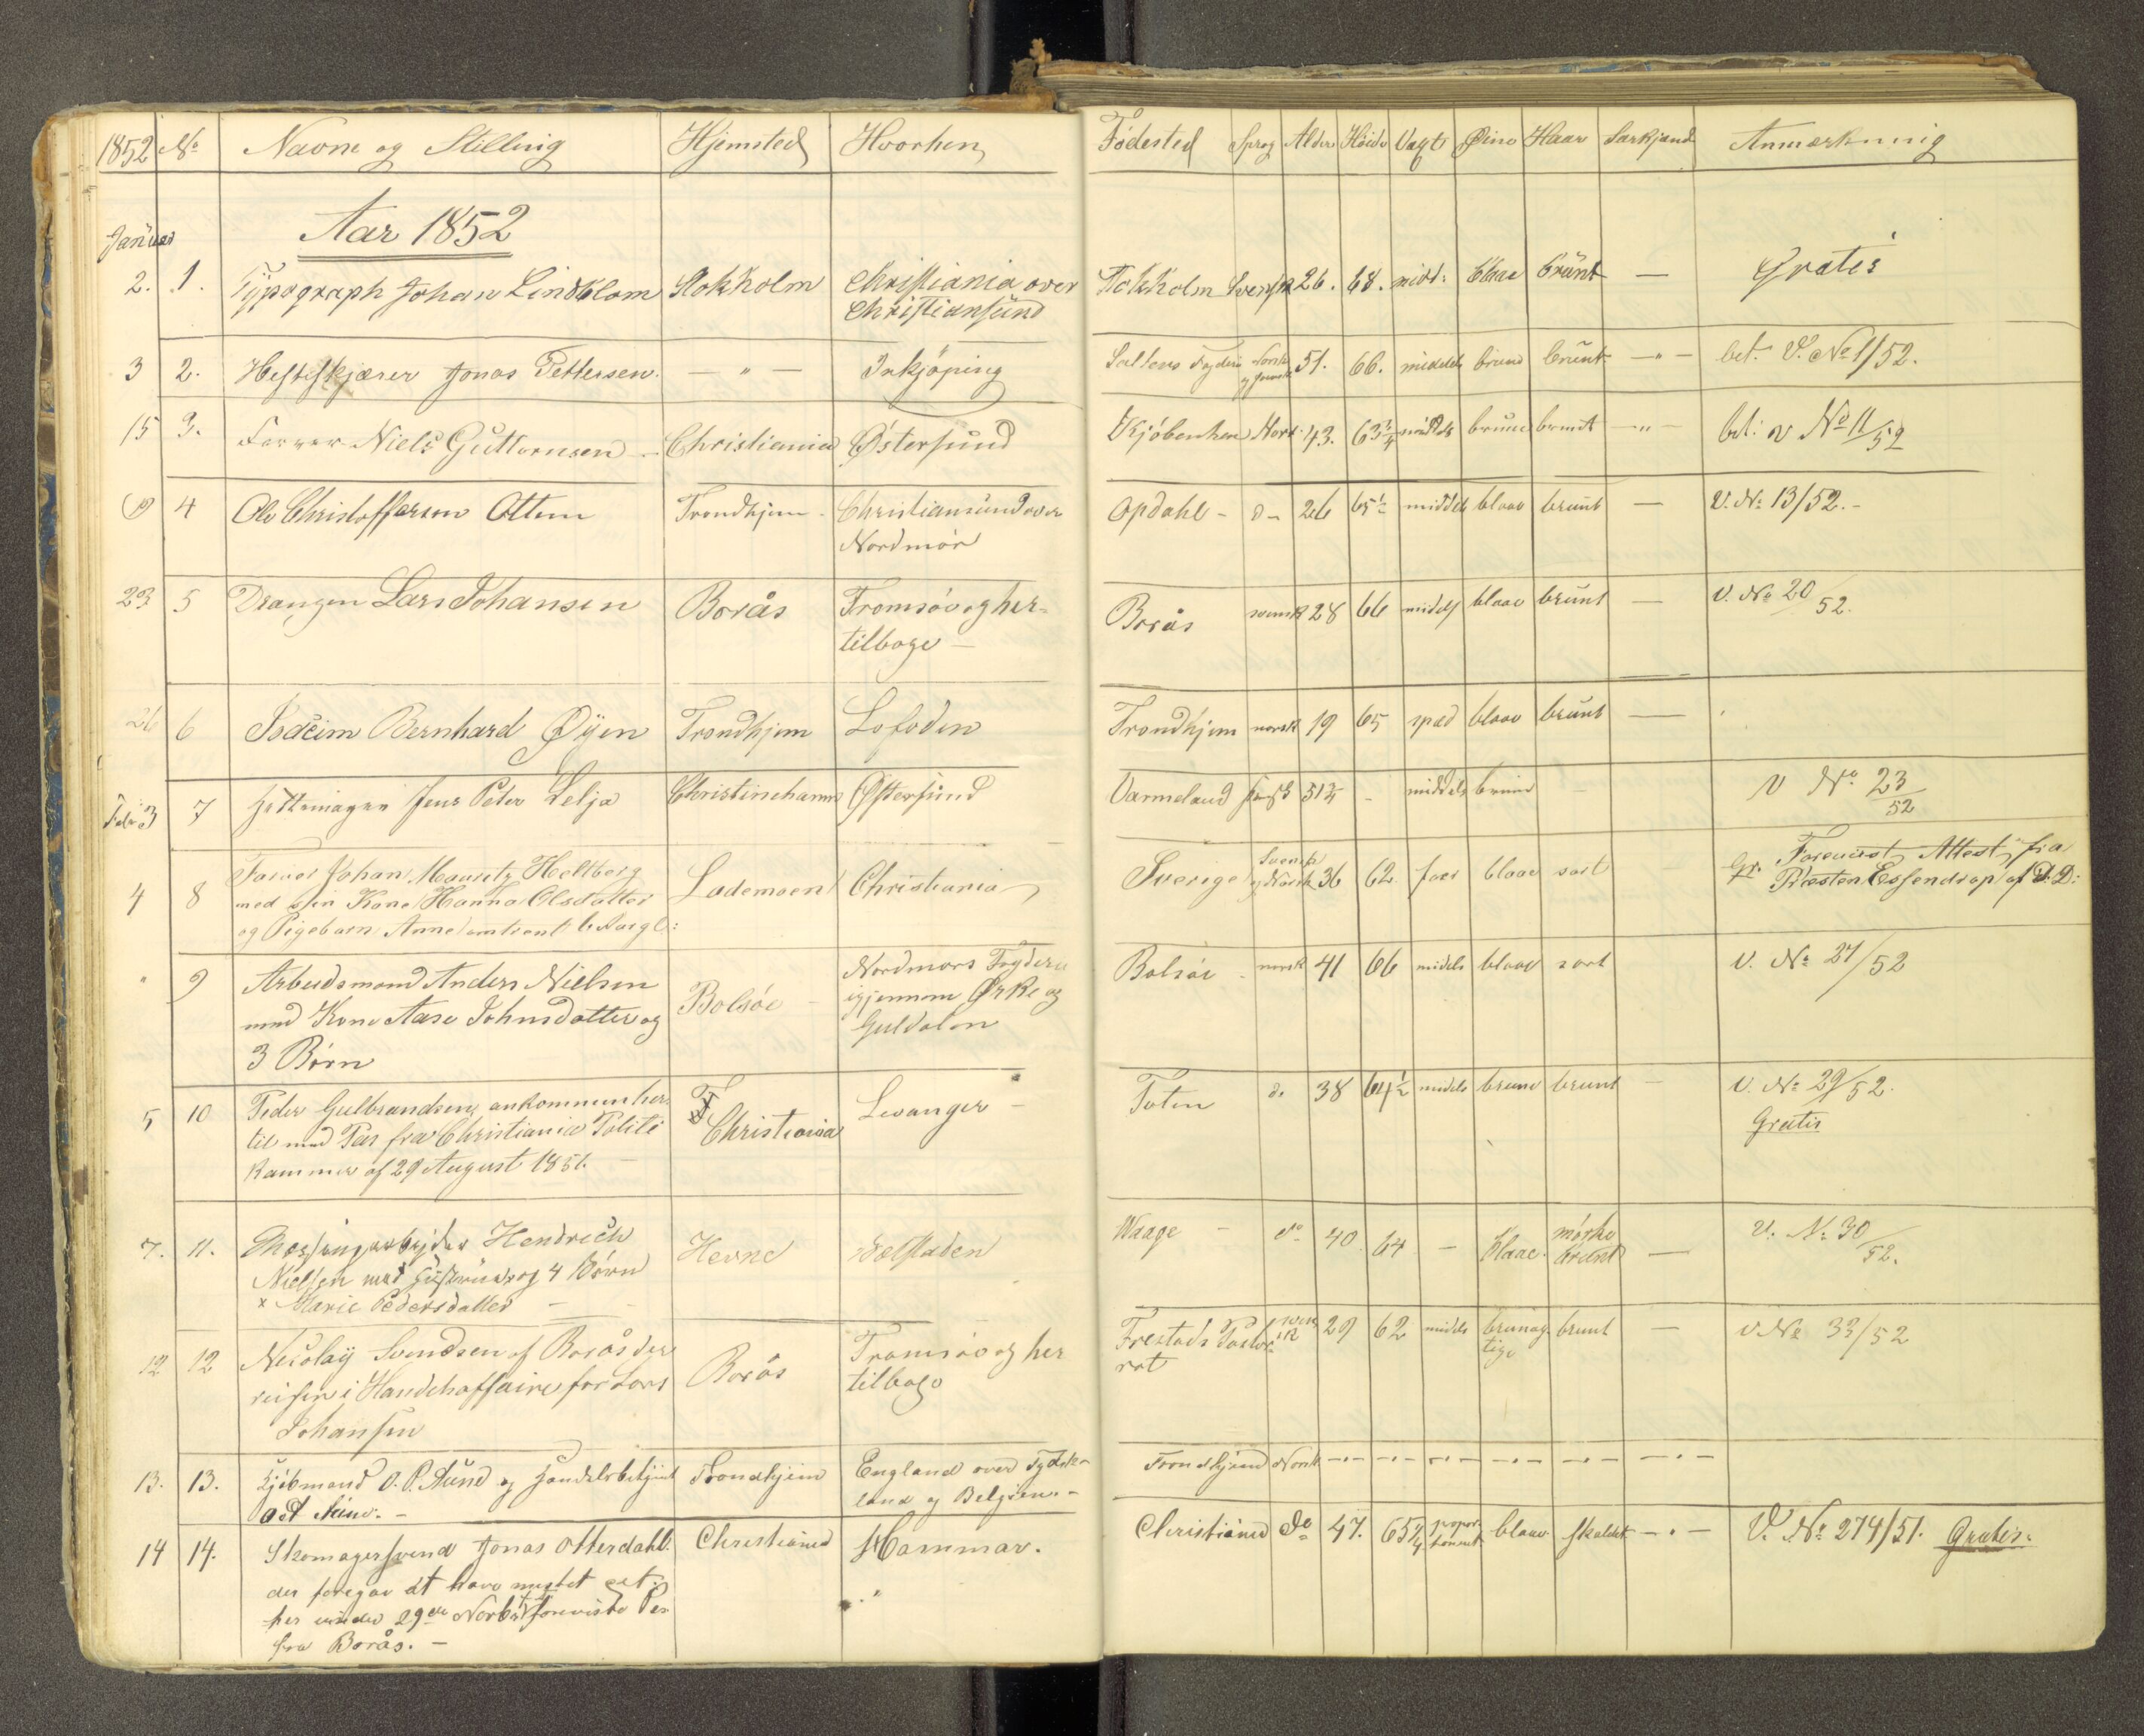 1852 No Navne og Stilling Hjemsted Hvorhen Fødested Sprog Alder Høide Vext Øine Haar Særkjend Anmærkning
Aar 1852
Januar
2. 1. Typograph Johan Lindblom Stokholm Christiania over Stokholm Svensk 26. 68. midd: blaae brünt — Gratis
Christiansünd
3 2. Jonas Pettersen. — " — Inkjöping Saltens Fogderi Norsk 51. 66. middels brune brünt — " — bet. V. No 1/52.
og Svensk
15 3. Farver Niels Guttormsen Christiania Østersünd Kjøbenhavn Norsk 43. 63 3/4 middels brune brunt — " — bet: v No 11/52
19 4 Ole Christoffersen Ottem Trondhjem - Christiansund over Opdahl - do 26 65 1/2 middels blaae brunt — V. No 13/52.-
Nordmør
23 5 Drengen Lars Johansen Borås Tromsøe og her- Borås svensk 28 66 middels blaae brünt — V. No 20/52.
tilbage —
26 6 Bernhard Øyen Trondhjem Lofoden Trondhjem norsk 19 65 spæd blaae brünt —
Febr 3 7 Jens Peter Lelja Christinehamn Østersund Varmeland svensk 51 3/4 - middels brune V No 23/52
4 8 Farver Johan Mauritz Heltberg Lademoen Christiania Sverige Svensk 36 62 før blaae sort Gr. Forevist Attest fra
med sin Kone Hanna Olsdatter og Norsk Præsten Essendrop af D. D:
og Pigebarn Anne omtrent 6 Aar gl:
" 9 Arbeidsmand Anders Nielsen Bolsøe - Nordmørs Fogderie Bolsøe - norsk 41 66 middels blaae sort V. No 27/52
med Kone Aase Johnsdatter og igjennem Ørke og
3 Børn Guldalen
5 10 Peder Gulbrandsen ankommen her- Christiania Levanger — Toten do 38 64 1/2 middels brune brunt — V. No 29/52.
til med Pas fra Christiania Politi Gratis
kammer af 29 August 1851. —
7. 11. Hendrich Hevne Waage - do 40 64 — blaae. mørke — V. No 30/52.
Nielsen med Hustrue x og 4 Børn brunt
x Marie Pedersdatter —
12 12 Nicolaÿ Svendsen af Borås der Borås Tromsøe og her Frestads Pasto- svensk 29 62 middels brunag- brunt — V No 33/52
reiser i Handelsaffaire for Lars tilbage rat tige
Johansen
13. 13. Kjøbmand O. P. Aune og Handelsbetjent Trondhjem England over Tydsk- Trondhjem Norsk
land og Belgien. -
14 14. Skomagersvend Jonas Otterdahl. Christiansd Hammar. Christiansd do 47. 65 3/4 propor- blaae skaldet — " — V. No 274/51. Gratis:
der foregav at have mistet et tioneret
her under 29de Novbr forevist Pas
fra Borås. —